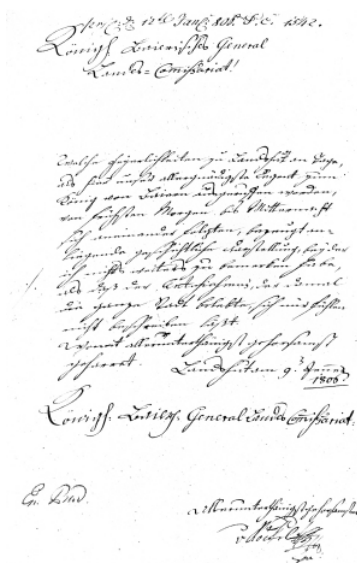 Königl. Baierisches General
Landes-Comissariat!
Welche Feyerlichkeiten zu Landshut am Tage,
als hier unser allergnädigster Regent zum
König von Baiern ausgerufen worden,
vom frühesten Morgen bis Mitternacht
sich aneinander folgten, bezeugt an-
liegende geschichtliche Darstellung, bey der
ich nichts weiters zu bemerken habe,
als daß der Enthusiasmus, der damal
die ganze Stadt belebte, sich nur fühlen
nicht beschreiben läßt.
Womit allerunterthänigst gehorsamst
geharret.
Landshut am 9. Jenner
1806
Königl. Baierisch. General Landes Comissariat.
Allerunterthänigst gehorsamster